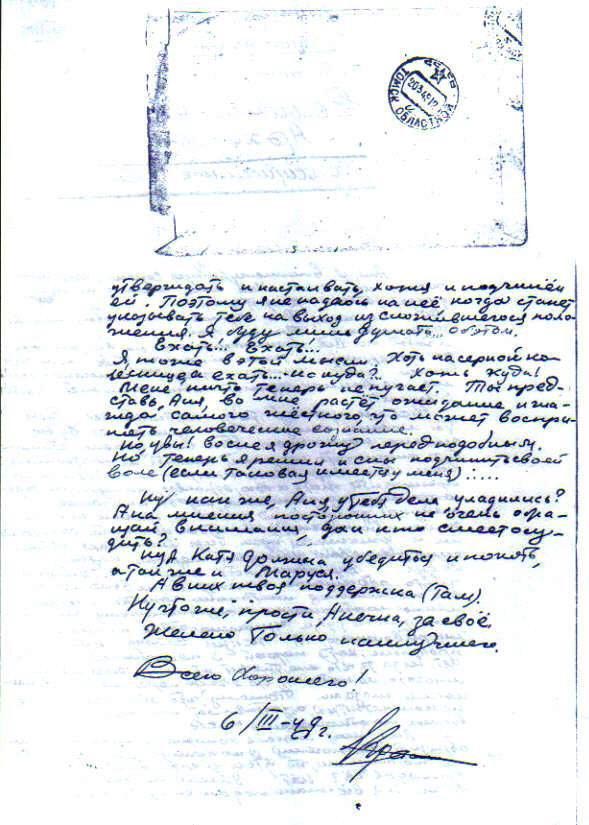 ТОМСК ОБЛАСТНОЙ
утверждать и настаивать, хотя и подчинён
ей. Поэтому я не надеюсь на неё когда станет
указывать тебе на выход из сложившегося поло-
жения. Я буду лишь думать... об этом.
Ехать!... Ехать!...
Я тоже в этой мысли. Хоть на серной ко-
леснице ехать... но куда?.. Хоть куда!
Меня ничто теперь не пугает. Ты пред-
ставь, Аня, во мне растёт ожидание и
самого жёсткого, что может воспри-
нять человеческое сознание.
Но увы! все дрожат перед подобным.
Но теперь я решил и сны подчинить своей
воле (если таковая имеется у меня) .....
Ну как же, Аня, у тебя дела уладились?
А на мнения посторонних не очень обра-
щай внимания, да и кто смеет осу-
дить?
Катя должна убедиться и понять,
а той же и Маруся.
А в них твоя поддержка (Там).
Ну что же, прости, Анечка, за своё.
Желаю только наилучшего.
Всего Хорошего!
6/III-49 г.